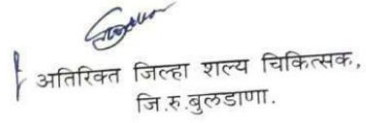 अतिरिक्त जिल्हा शल्य चिकित्सक,
जि.रु.बुलडाणा.